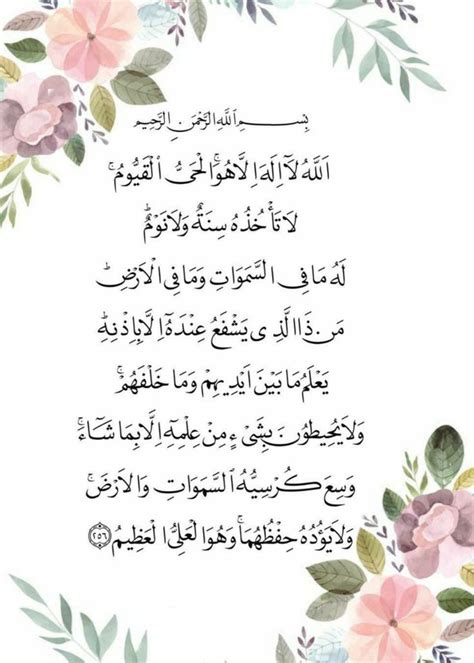 بِسْمِ ٱللَّهِ ٱلرَّحْمَٰنِ ٱلرَّحِيمِ
اَللّٰهُ لَآ اِلٰهَ اِلَّا هُوَۚ اَلْحَىُّ الْقَيُّومُۚ
لَا تَأْخُذُهُ سِنَةٌ وَلَا نَوْمٌۜ
لَهُ مَا فِى السَّمٰوَاتِ وَمَا فِى الْاَرْضِۜ
مَنْ ذَا الَّذِى يَشْفَعُ عِنْدَهُٓ اِلَّا بِاِذْنِهِۜ
يَعْلَمُ مَا بَيْنَ اَيْدِيهِمْ وَمَا خَلْفَهُمْۚ
وَلَا يُحِيطُونَ بِشَىْءٍ مِنْ عِلْمِهِٓ اِلَّا بِمَا شَٓاءَۚ
وَسِعَ كُرْسِيُّهُ السَّمٰوَاتِ وَالْاَرْضَۚ
وَلَا يَؤُدُهُ حِفْظُهُمَاۚ وَهُوَ الْعَلِىُّ الْعَظِيمُ ﴿٢٥٦﴾